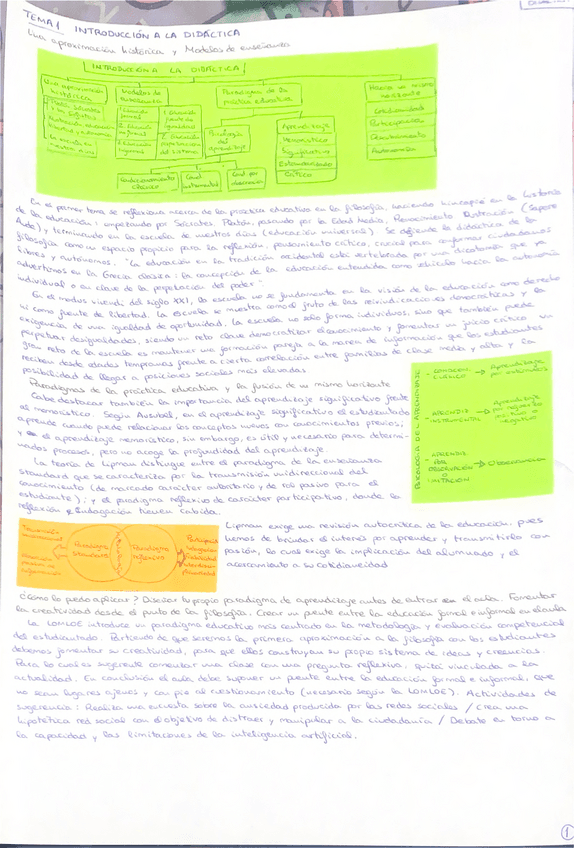 TEMA 1 INTRODUCCIÓN A LA DIDÁCTICA
Una aproximación histórica y Modelos de enseñanza
INTRODUCCIÓN A LA DIDÁCTICA
Una aproximación histórica
Modelos de enseñanza
Paradigma de la práctica educativa
Hacia un mismo horizonte
Educación formal
Educación informal
Paradigma del aprendizaje
Aprendizaje
Memorístico
Significativo
Estandarizado
Crítico
Creatividad
Participación
Autonomía
Condicionamiento clásico
Cond. instrumental
Cond. por observación
En el primer tema se reflexiona acerca de la práctica educativa en la filosofía, haciendo hincapié en la historia
de la educación: empezando por Sócrates, Platón, pasando por la Edad Media, Renacimiento, Ilustración (Sapere
Aude) y terminando en la escuela de nuestros días (educación universal). Se defiende la didáctica de la
filosofía como un espacio propicio para la reflexión, pensamiento crítico, crucial para conformar ciudadanos
libres y autónomos. "La educación en la tradición occidental está vertebrada por una dicotomía que ya
advertimos en la Grecia clásica: la concepción de la educación entendida como vehículo hacia la autonomía
individual o en clave de la perpetuación del poder".
En el modus vivendi del siglo XXI, la escuela se fundamenta en la visión de la educación como derecho
y como fuente de libertad. La escuela se muestra como el fruto de las reivindicaciones democráticas y la
exigencia de una igualdad de oportunidad. La escuela no sólo forma individuos, sino que también puede
perpetuar desigualdades, siendo un reto clave democratizar el conocimiento y fomentar un juicio crítico. Un
gran reto de la escuela es mantener una formación pareja a la marea de información que los estudiantes
reciben desde edades tempranas frente a cierta correlación entre familias de clase media y alta y la
posibilidad de llegar a posiciones sociales más elevadas
Paradigmas de la práctica educativa y la fusión de un mismo horizonte
Cabe destacar también la importancia del aprendizaje significativo frente
al memorístico. Según Ausubel, en el aprendizaje significativo el estudiantado
aprende cuando puede relacionar los conceptos nuevos con conocimientos previos;
y el aprendizaje memorístico, sin embargo, es útil y necesario para determi-
nados procesos, pero no acoge la profundidad del aprendizaje.
La teoría de Lipman distingue entre el paradigma de la enseñanza
standard que se caracteriza por la transmisión unidireccional del
conocimiento (de marcado carácter autoritario y de rol pasivo para el
estudiante); y el paradigma reflexivo de carácter participativo, donde la
reflexión e indagación tienen cabida.
PSICOLOGÍA DEL APRENDIZAJE
CONDICION. CLÁSICO → Aprendizaje por
APRENDIZ. INSTRUMENTAL → Aprendizaje por refuerzo positivo o negativo
APRENDIZ. POR OBSERVACIÓN O IMITACIÓN → Observacional
Paradigma standard
Paradigma reflexivo
Lipman exige una revisión autocrítica de la educación, pues
hemos de brindar el interés por aprender y transmitirlo con
pasión, lo cual exige la implicación del alumnado y el
acercamiento a su cotidianeidad
¿Cómo lo puedo aplicar? Diseñar tu propio paradigma de aprendizaje antes de entrar en el aula. Fomentar
la creatividad desde el punto de la filosofía. Crear un puente entre la educación formal e informal en el aula
La LOMLOE introduce un paradigma educativo más centrado en la metodología y evaluación competencial
del estudiantado. Partiendo de que seremos la primera aproximación a la filosofía con los estudiantes
debemos fomentar su creatividad, para que ellos construyan su propio sistema de ideas y creencias.
Para lo cual es sugerente comenzar una clase con una pregunta reflexiva, quizá vinculada a la
actualidad. En conclusión el aula debe suponer un puente entre la educación formal e informal, que
no sean lugares ajenos y con pie al cuestionamiento (necesario según la LOMLOE). Actividades de
sugerencia: Realiza una encuesta sobre la ansiedad producida por las redes sociales / Crea una
hipotética red social con el objetivo de distraer y manipular a la ciudadanía / Debate en torno a
la capacidad y las limitaciones de la inteligencia artificial.
1